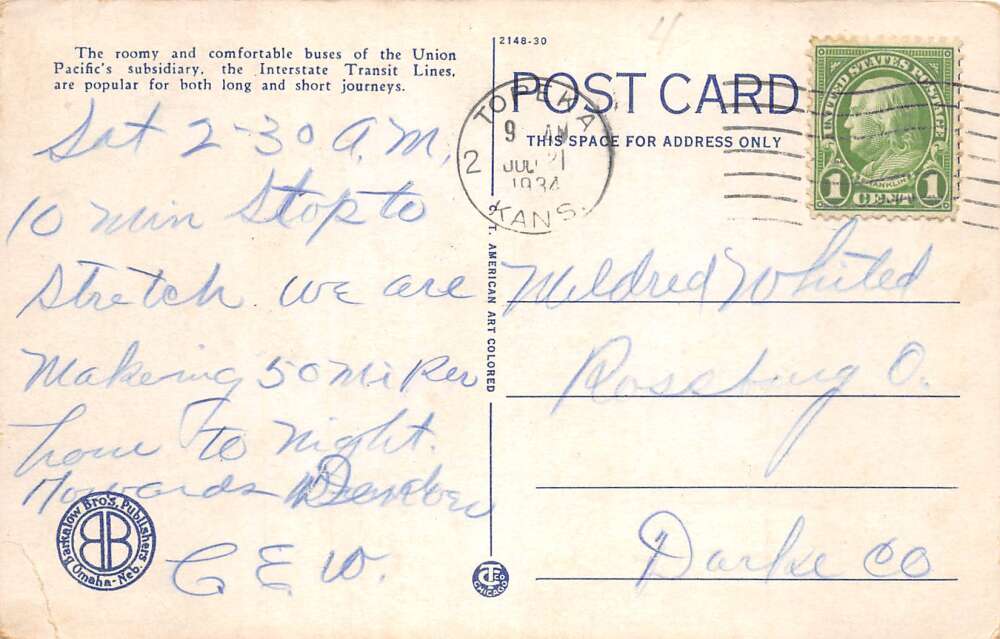 The roomy and comfortable buses of the Union
Pacific's subsidiary, the Interstate Transit Lines,
are popular for both long and short journeys.
Sat 2-30 A.M,
10 min Stop to
Stretch. we are
Makeing 50 Mi Per
hour To Night.
Towards Denver
C. E. W.
Barkalow Bro's, Publishers
BB
Omaha-Neb.
2148-30
C. T. AMERICAN ART COLORED
CT CO
CHICAGO
POST CARD
THIS SPACE FOR ADDRESS ONLY
TOPEKA
9 AM
2
JUL 21
1934
KANS.
UNITED STATES POSTAGE
FRANKLIN
1 CENT 1
Mildred Whited
Rossburg O.
Darke Co